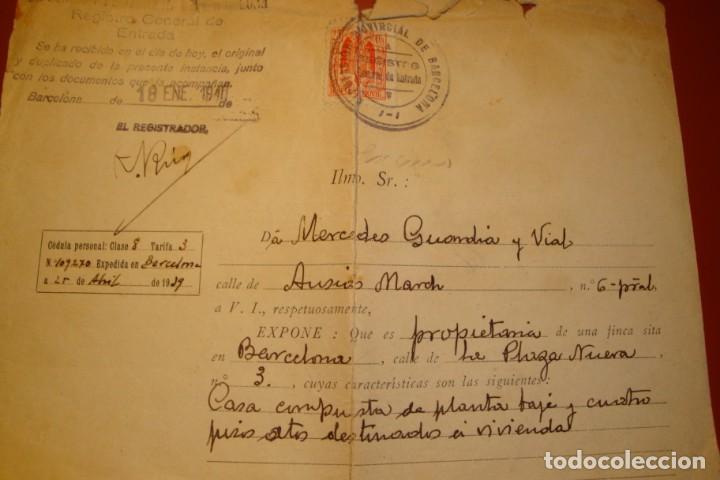 Registro General de
Entrada
Se ha recibido en el día de hoy, el original
y duplicado de la presente instancia, junto
con los documentos que la acompañan.
Barcelona de 18 ENE. 1940 de
EL REGISTRADOR,
PROVINCIAL DE BARCELONA
Ilmo. Sr.:
Cédula personal: Clase 8 Tarifa 3
N. 109270 Expedida en Barcelona
a 25 de Abril de 1939
Dª Mercedes Guardia y Vial
calle de Ausias March, n.º 6-pral.
a V. I., respetuosamente,
EXPONE: Que es propietaria de una finca sita
en Barcelona, calle de La Plaza Nueva
n.º 3., cuyas características son las siguientes:
Casa compuesta de planta baja y cuatro
pisos altos destinados á vivienda
todocoleccion.net